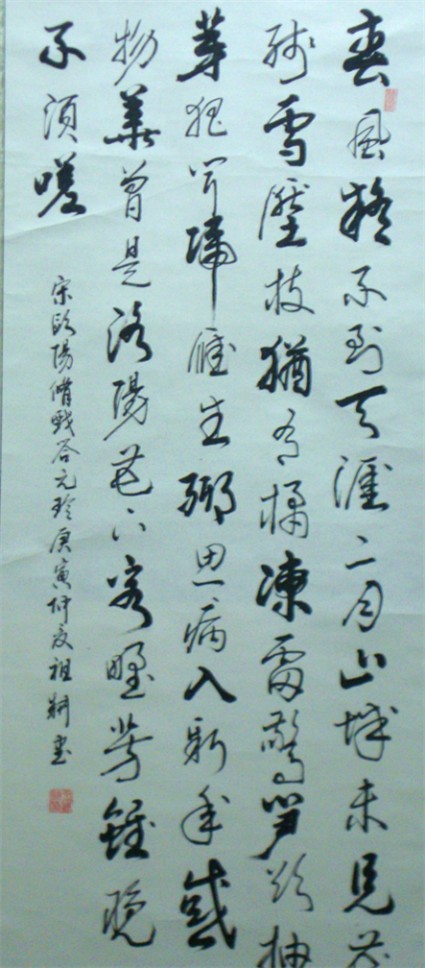 春風疑不到天涯二月山城未見花
殘雪壓枝猶有橘凍雷驚笋欲抽
芽夜聞歸雁生鄉思病入新年感
物華曾是洛陽花下客野芳雖晚
不須嗟
宋歐陽脩戲答元珍庚寅仲夏祖耕書